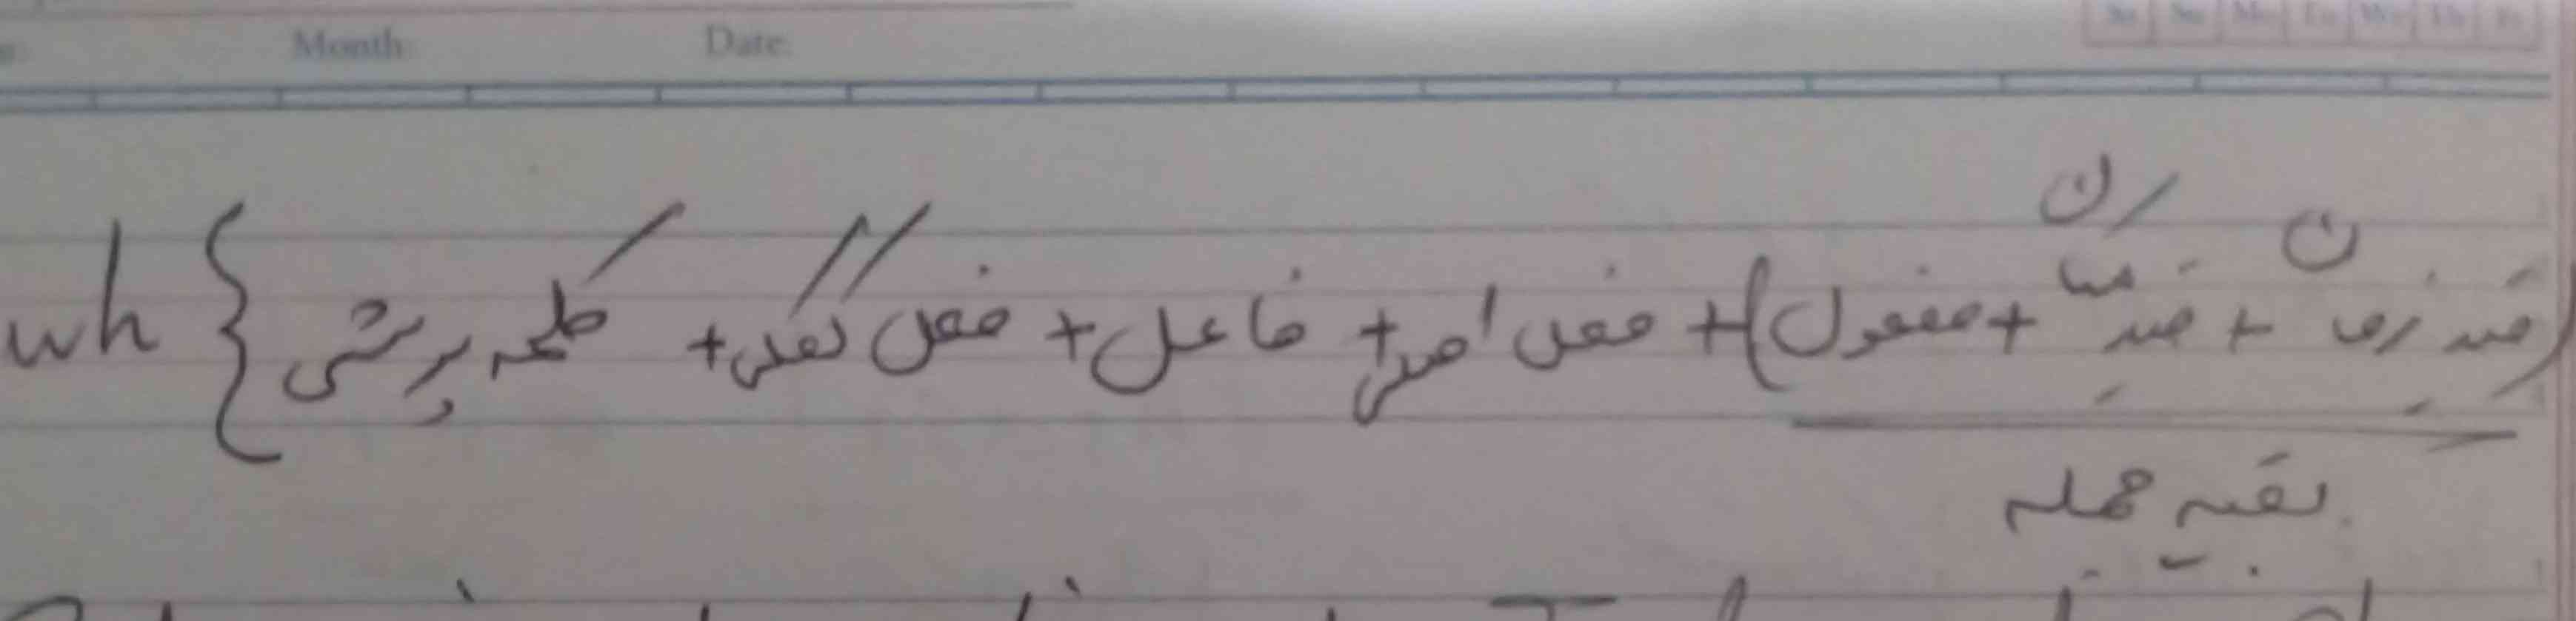 Month Date
Sa Su Mo Tu We Th Fr
wh { کلمه پرسشی + فعل کمکی + فاعل + فعل اصلی + (مفعول + قید مکان + قید زمان)
بقیه جمله